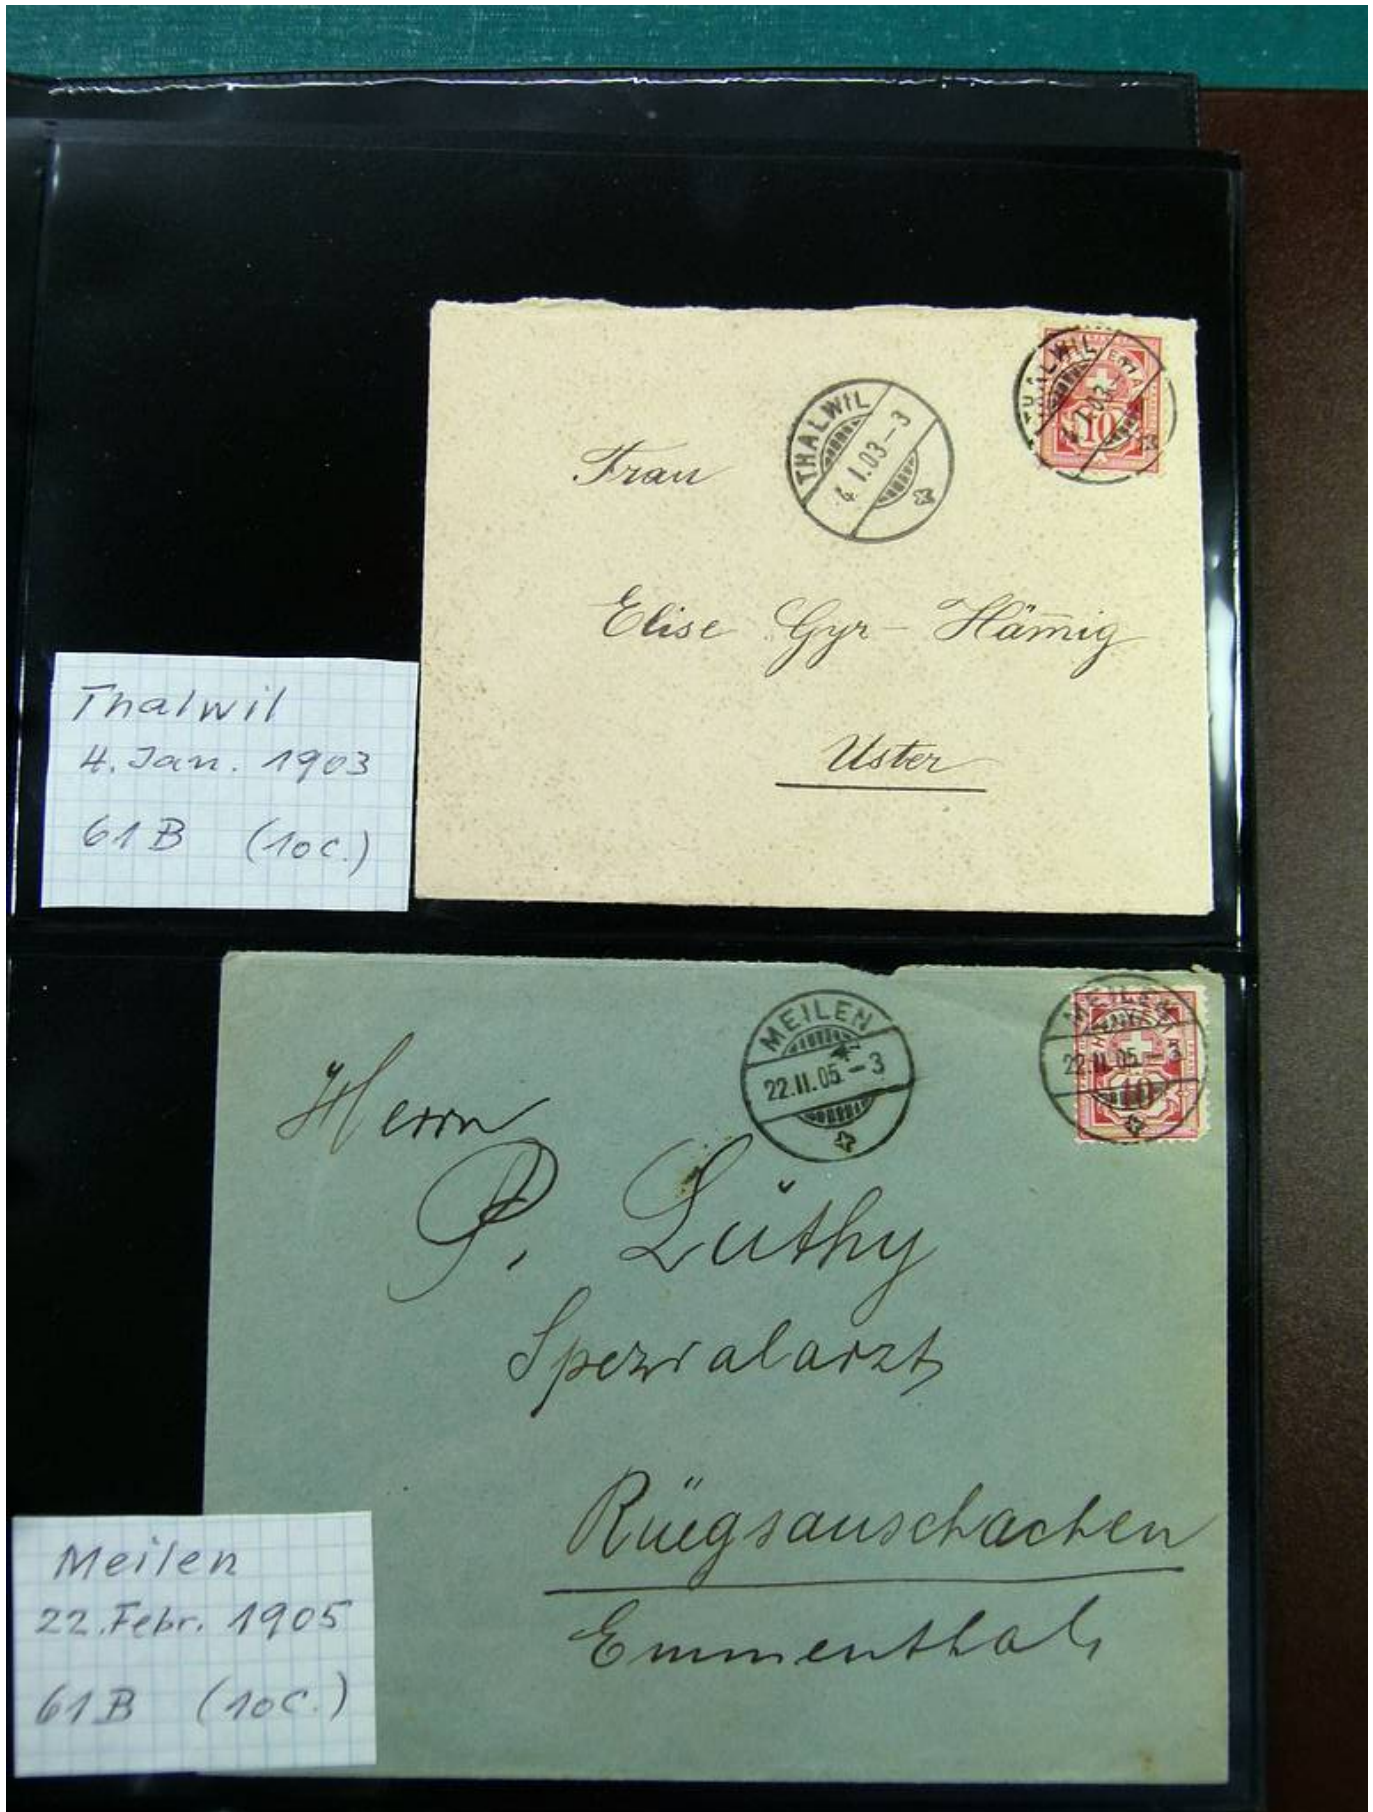 THALWIL
4.I.03-3
THALWIL
4.I.03-
10
Frau
Elise Gyr-Häm̅ig
Uster
Thalwil
4. Jan. 1903
61B (10c.)
MEILEN
22.II.05-3
MEILEN
22.II.05-3
10
Herrn
P. Lüthy
Spezialarzt
Rüegsauschachen
Emmenthal
Meilen
22. Febr. 1905
61B (10c.)